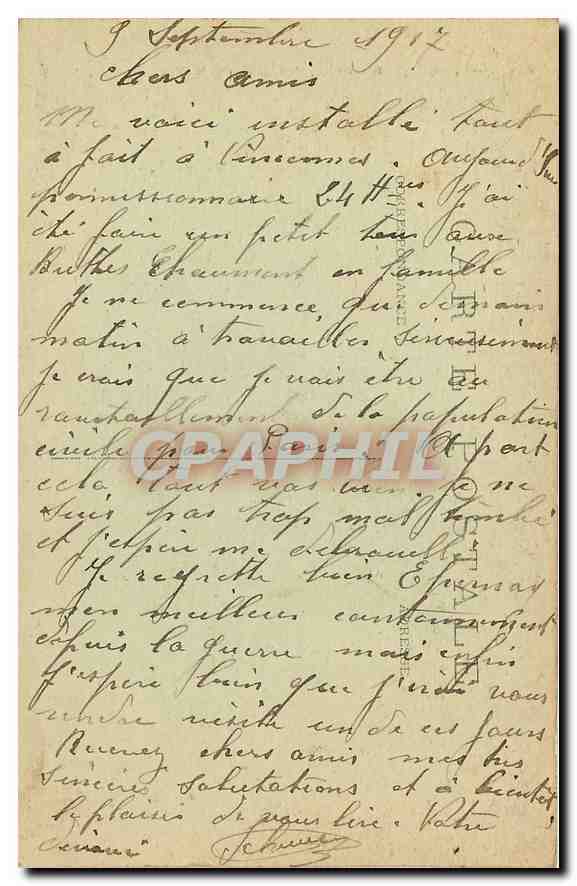 9 Septembre 1917
chers amis
Me voici installé tout
à fait à Vincennes. Aujourd'hui
permissionnaire 24 Hres. J'ai
été faire un petit tour aux
Buttes Chaumont en famille
Je ne commence que demain
matin à travailler sérieusement
je crois que je vais être au
ravitaillement de la population
civile pour Paris. A part
cela tout vas bien. Je ne
suis pas trop mal tombé
et j'espère me débrouiller
Je regrette bien Epernay
mon meilleur cantonnement
depuis la guerre mais enfin
j'espère bien que j'irai vous
rendre visite un de ces jours
Recevez chers amis mes très
sincères salutations et à bientôt
le plaisir de vous lire. Votre
dévoué
CARTE POSTALE
CORRESPONDANCE
ADRESSE
CPAPHIL